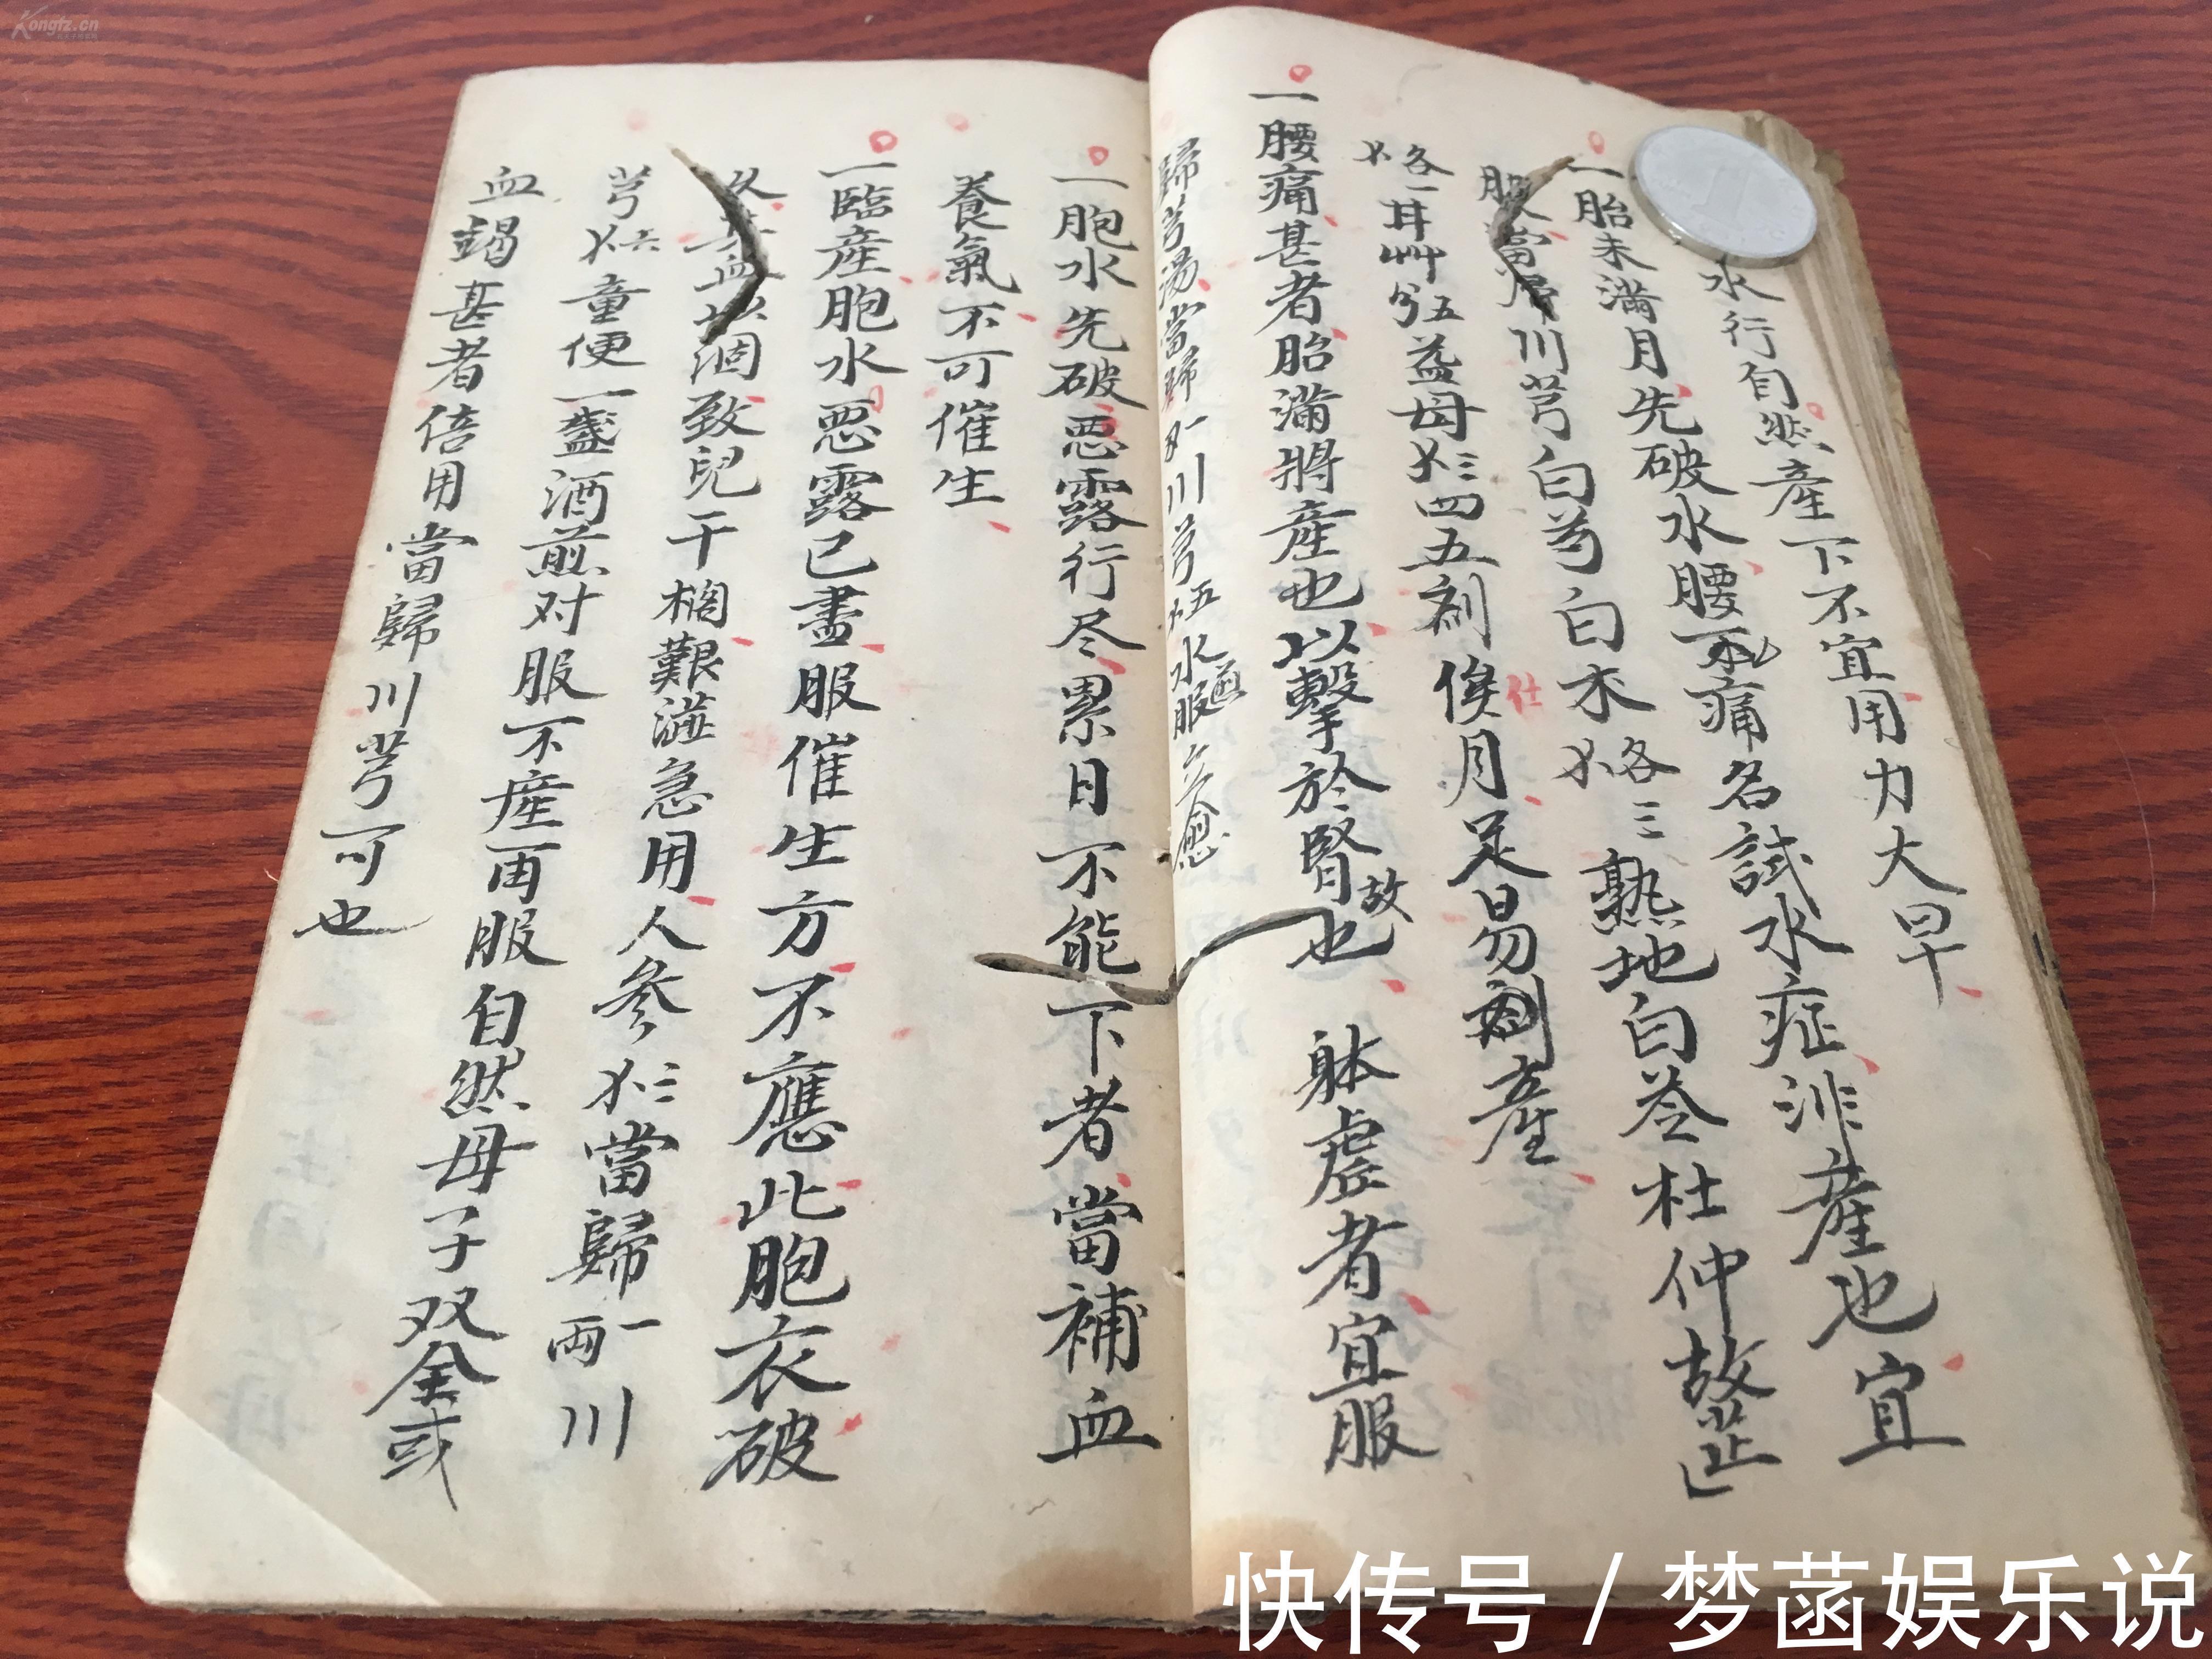 水行自然產下不宜用力大早
一胎未滿月先破水腰不痛名試水症非產也宜
服當歸川芎白芍白朮各三熟地白苓杜仲故芷
各一甘艸五益母三四五劑俟月足易產
一腰痛甚者胎滿將產也以擊於腎故也 躰虛者宜服
歸芎湯當歸一川芎五水煎服立愈
一胞水先破惡露行尽累日不能下者當補血
養氣不可催生
一臨産胞水惡露已盡服催生方不應此胞衣破
久其血涸致兒干榈艱澁急用人參三當歸一両川
芎六童便一盞酒煎对服不産再服自然母子双全或
血竭甚者倍用當歸川芎可也
Kongfz.cn
快传号 / 梦菡娱乐说